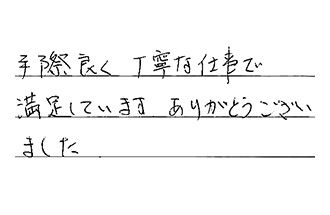 手際良く 丁寧な仕事で
満足しています ありがとうござい
ました